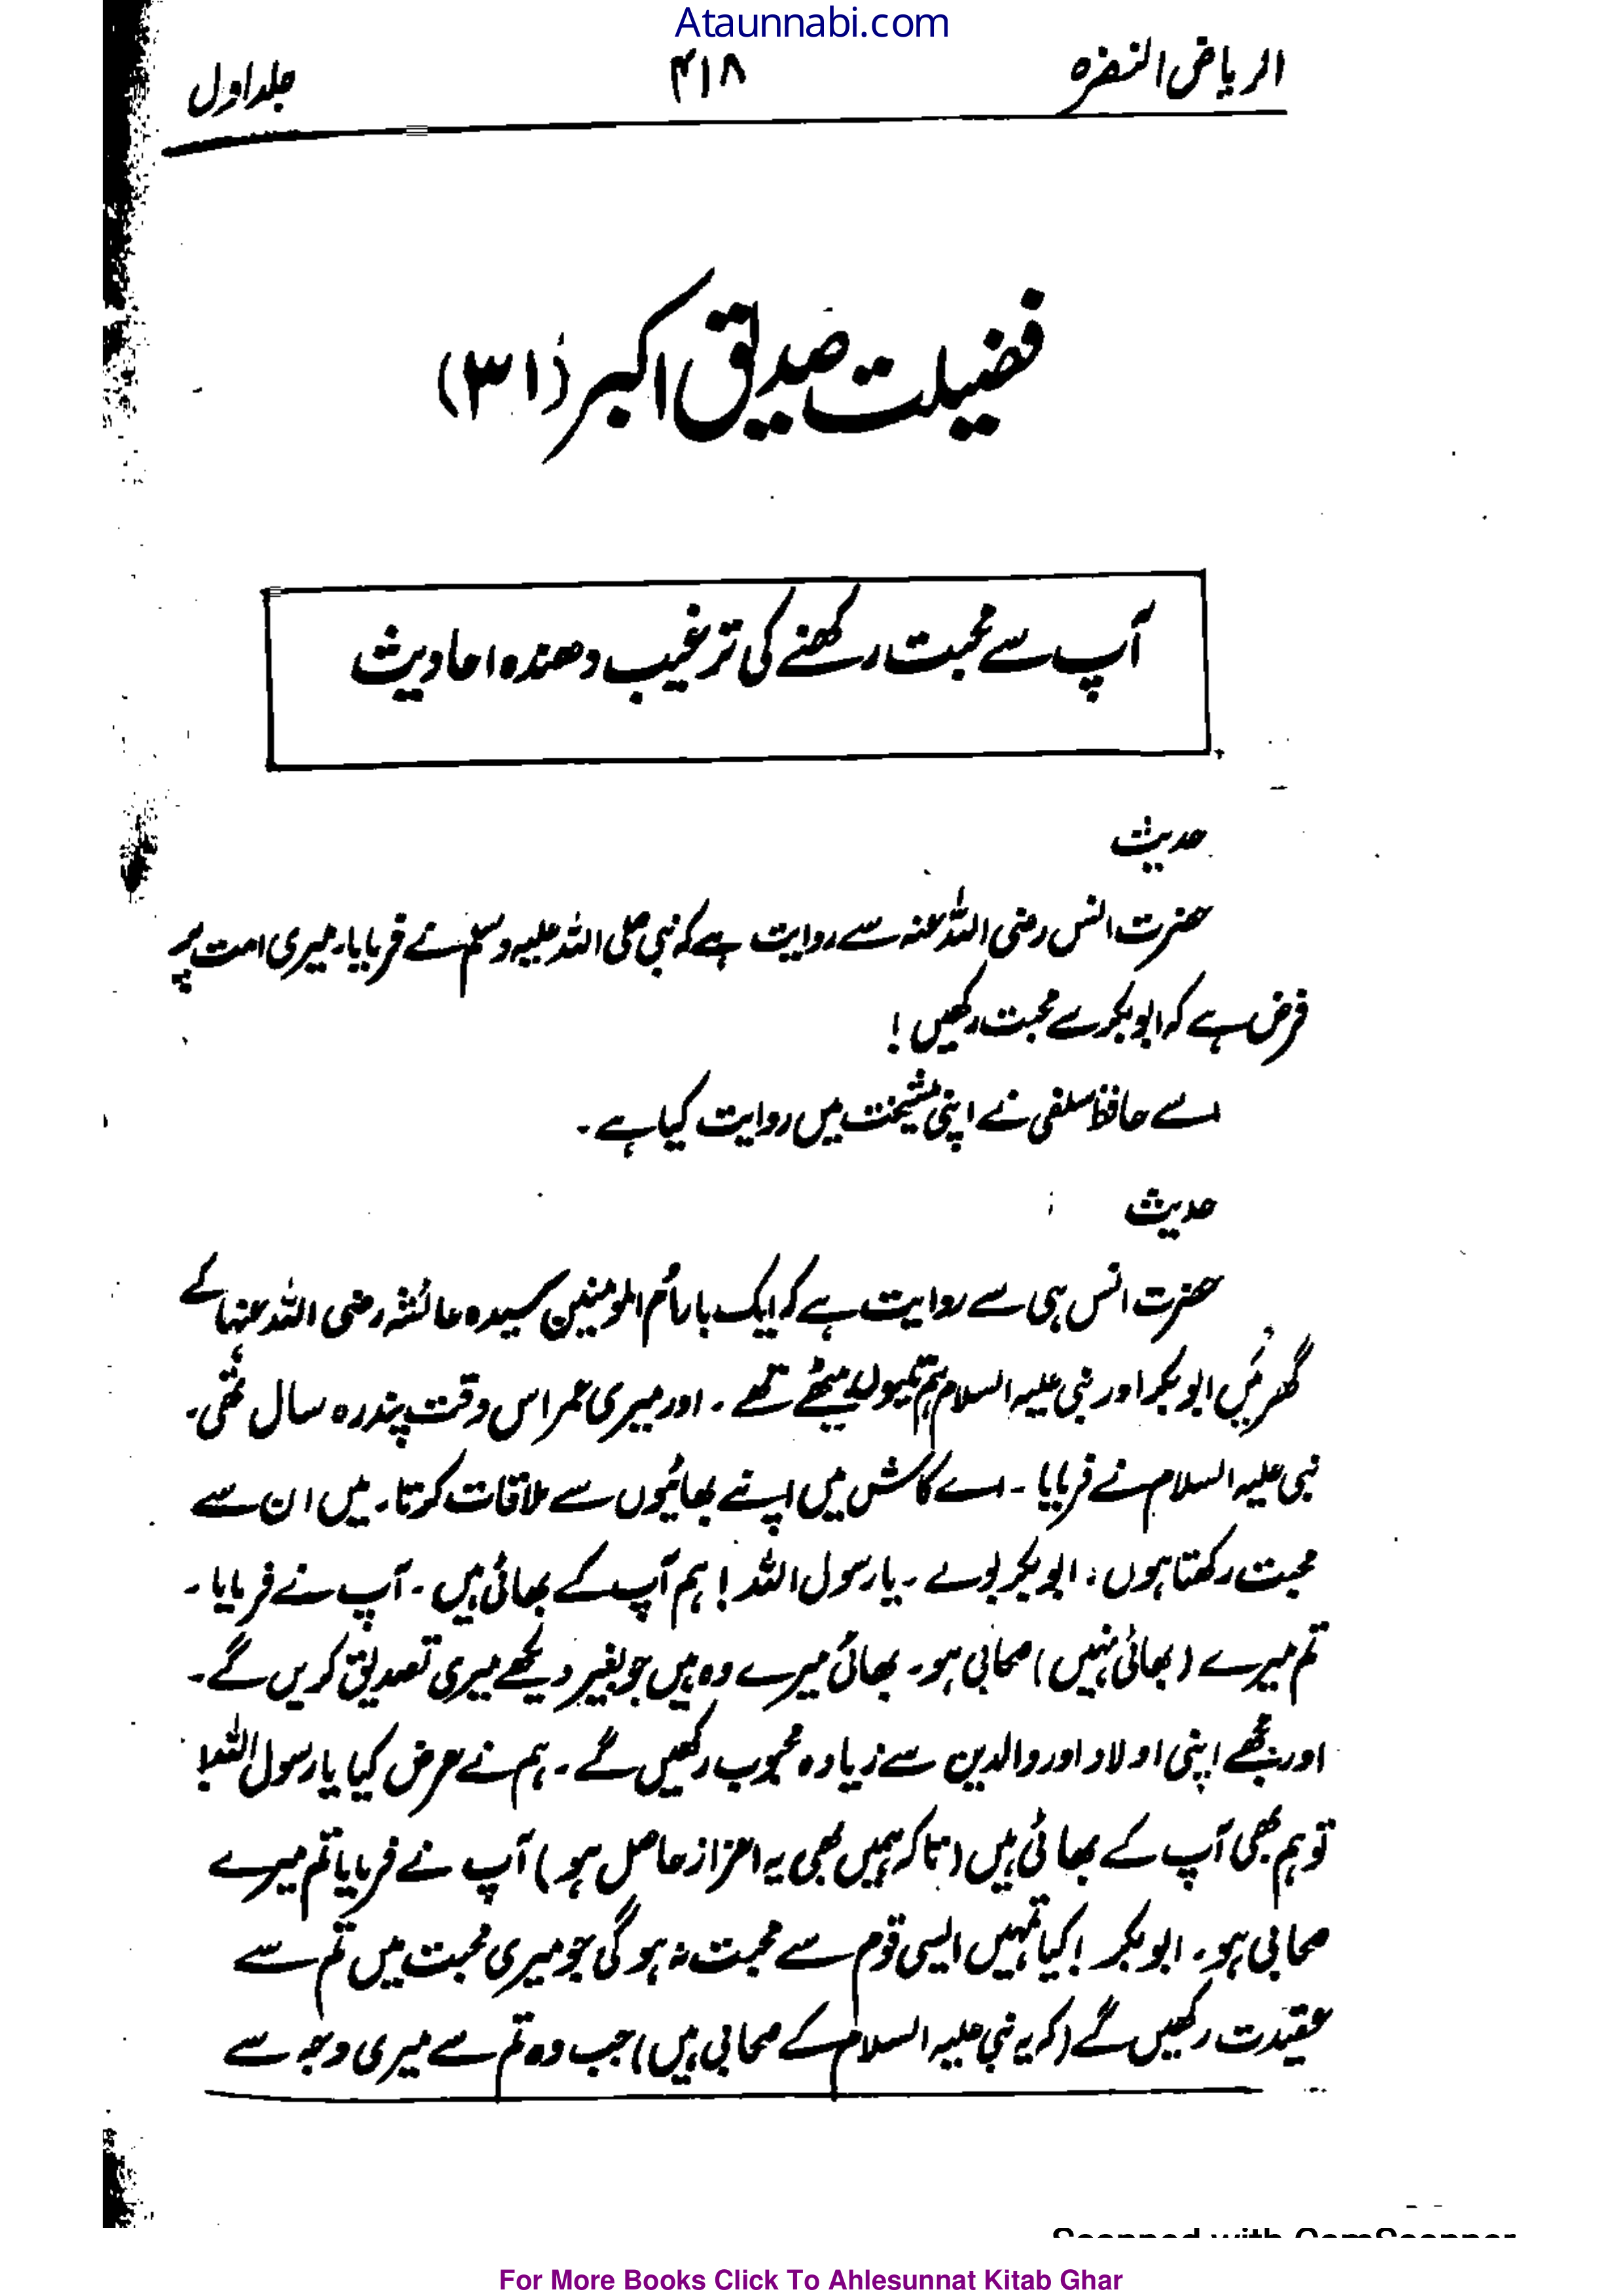 Ataunnabi.com
الریاض النضرہ ۴۱۸ جلد اول
فضیلت صدیق اکبر (۳۱)
آپ سے محبت رکھنے کی ترغیب دھندہ احادیث
حدیث
حضرت انس رضی اللہ عنہ سے روایت ہے کہ نبی صلی اللہ علیہ وسلم نے فرمایا۔ میری امت پر
فرض ہے کہ ابوبکر سے محبت رکھیں!
اسے حافظ سلفی نے اپنی مشیخت میں روایت کیا ہے۔
حدیث
حضرت انس ہی سے روایت ہے کہ ایک بار اُم المومنین سیدہ عائشہ رضی اللہ عنہا کے
گھر میں ابوبکر اور نبی علیہ السلام ہم تینوں بیٹھے تھے۔ اور میری عمر اس وقت پندرہ سال تھی۔
نبی علیہ السلام نے فرمایا۔ اے کاش میں اپنے بھائیوں سے ملاقات کرتا۔ میں ان سے
محبت رکھتا ہوں، ابوبکر بولے۔ یا رسول اللہ! ہم آپ کے بھائی ہیں۔ آپ نے فرمایا۔
تم میرے (بھائی نہیں) صحابی ہو۔ بھائی میرے وہ ہیں جو بغیر دیکھے میری تصدیق کریں گے۔
اور مجھے اپنی اولاد اور والدین سے زیادہ محبوب رکھیں گے۔ ہم نے عرض کیا یا رسول اللہ!
تو ہم بھی آپ کے بھائی ہیں (تاکہ ہمیں بھی یہ اعزاز حاصل ہو) آپ نے فرمایا تم میرے
صحابی ہو۔ ابوبکر! کیا تمہیں ایسی قوم سے محبت نہ ہو گی جو میری محبت میں تم سے
عقیدت رکھیں گے (کہ یہ نبی علیہ السلام کے صحابی ہیں) جب وہ تم سے میری وجہ سے
Scanned with CamScanner
For More Books Click To Ahlesunnat Kitab Ghar